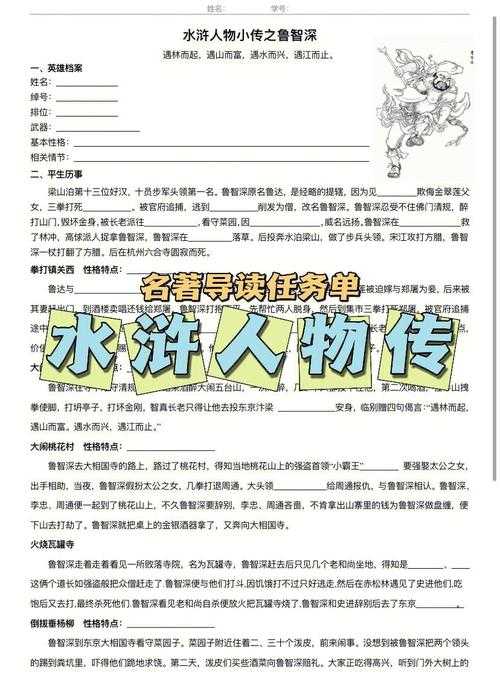 姓名: 学号:
水浒人物小传之鲁智深
遇林而起，遇山而富，遇水而兴，遇江而止。
一、英雄档案
姓名：
绰号：
排位：
武器：
基本性格：
相关情节：
二、平生历事
梁山泊第十三位好汉，十员步军头领第一名。鲁智深原名鲁达，是经略的提辖，因为见 欺侮金翠莲父
女，三拳打死 。被官府追捕，逃到 削发为僧，改名鲁智深。鲁智深忍受不住佛门清规，醉
打山门，毁坏金身，被长老派往 ，看守菜园，因 ，威名远扬。鲁智深在 救
了林冲，高俅派人捉拿鲁智深，鲁智深在 落草。后投奔水泊梁山，做了步兵头领。宋江攻打方腊，鲁智
深一杖打翻了方腊。后在杭州六合寺圆寂而死。
拳打镇关西 性格特点：
名著导读任务单
鲁达与 莲被迫嫁与郑屠为妾，后来被
水浒人物传
拳使脚，打坍亭子，打坏金刚，智真长老只得让他去投东京汴梁 安身，临别赠四句偈言：“遇林而起，
遇山而富。遇水而兴，遇江而止。”
大闹桃花村 性格特点：
鲁智深去大相国寺的路上，路过了桃花村，得知当地桃花山上的强盗首领“小霸王” 要强娶太公之女，
出手相助，当夜，鲁智深假扮太公之女，几拳打退周通。大头领 给周通报仇，与鲁智深相认。鲁智深，
李忠、周通便一起到了桃花山上，不久鲁智深要辞别，李忠、周通吝啬，不肯拿出山寨里的钱为鲁智深做盘缠，便
下山去打劫了。鲁智深就把桌上的金银酒器拿了，又奔向大相国寺。
火烧瓦罐寺
鲁智深走着走着看见一所败落寺院，名为瓦罐寺，鲁智深赶去后只见几个老和尚坐地、得知是 、
这俩个道长如强盗般把众僧赶走了.鲁智深便与他们打斗,因饥饿打不过只好逃走,然后在赤松林遇见了史进他们.吃
饱后又去打,最终杀死他们.鲁智深看见老和尚自杀便放火把瓦罐寺烧了.鲁智深和史进辞别后去了东京
倒拔垂杨柳 性格特点：
鲁智深到东京大相国寺看守菜园子。菜园子附近住着二、三十个泼皮，前来闹事。没想到被鲁智深把两个领头
的踢到粪坑里，吓得他们跪地求饶。第二天，泼皮们买些酒菜向鲁智深赔礼。大家正吃得高兴，听到门外大树上的